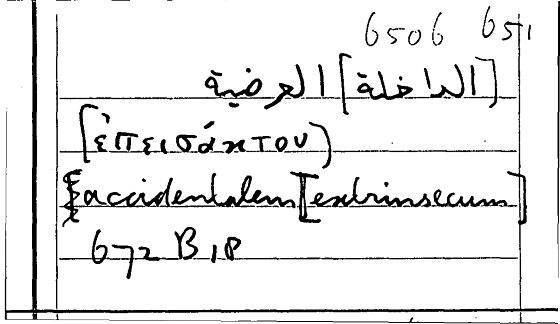 6506 651
العرضية [الداخلة]
(ἐπεισάκτου)
accidentalem [extrinsecum]
672 B 18